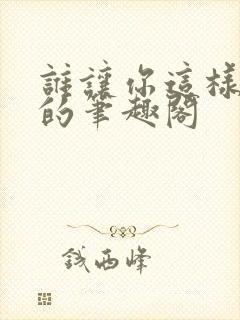 誰讓你這樣
的筆趣閣
錢西峰